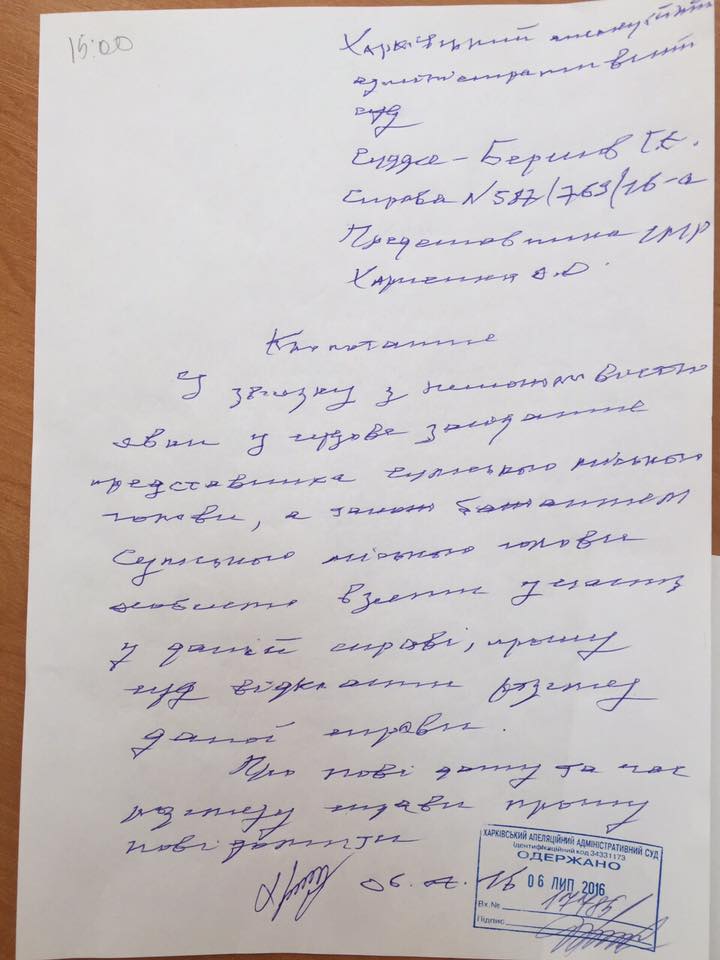 15:00
Харківський апеляційний
адміністративний
суд
Суддя - Бершов Г.Є.
Справа № 587/763/16-а
Представника СМР
Клопотання
У зв'язку з неможливістю
явки у судове засідання
представника Сумського міського
голови, а також бажанням
Сумського міського голови
особисто взяти участь
у даній справі, прошу
суд відкласти розгляд
даної справи.
Про нові дату та час
розгляду справи прошу
повідомити
ХАРКІВСЬКИЙ АПЕЛЯЦІЙНИЙ АДМІНІСТРАТИВНИЙ СУД
Ідентифікаційний код 34331173
ОДЕРЖАНО
06 ЛИП 2016
Вх.№ 17785/
Підпис